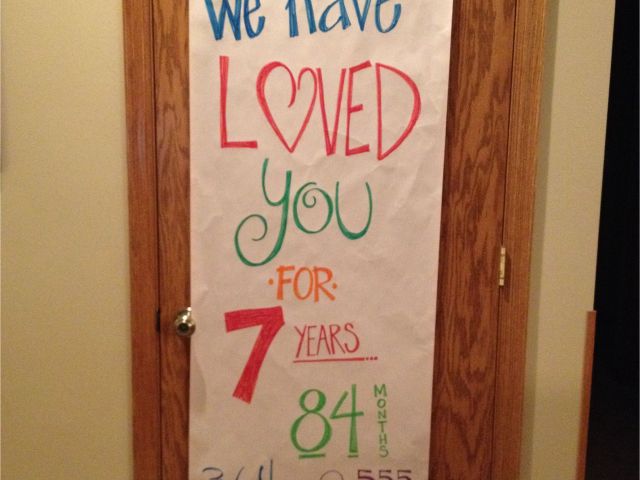 We Have
LOVED
YOU
·FOR·
7 YEARS...
84 MONTHS